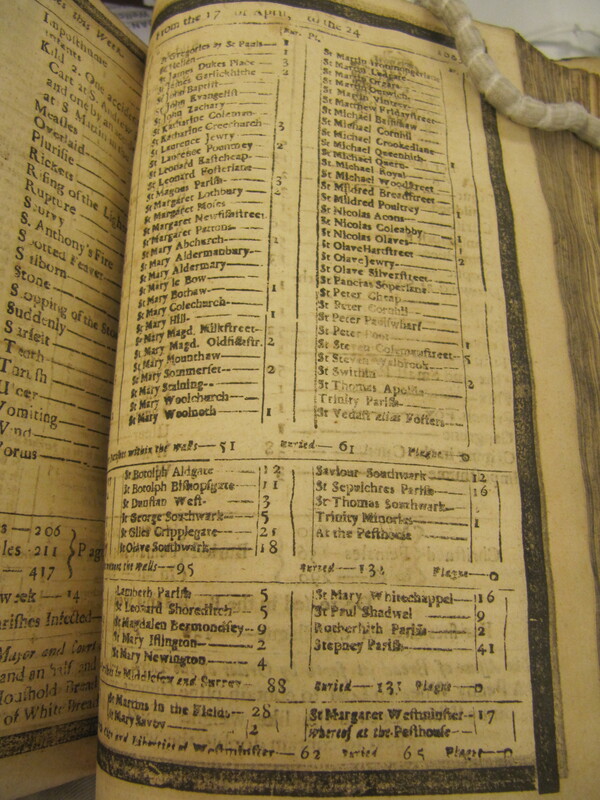 this Week.
Impostthume
Infants
Kild 2. One accid
Cart at S. A
and one by an
at S. Ma
Measles
Overlaid
Plurisie
Rickets
Rising of the Lights
Rupture
Scurvy
S. Anthony's Fire
Spotted Feaver
Stilborn
Stone
Stopping of the Sto
Suddenly
Surfeit
Teeth
Thrush
Ulcer
Vomiting
Wind
Worms
206
les 211
417
week 14
arishes Infected
Mayor and Court
and an half and
Houshold Bread
of White Bread
From the 17 of April, to the 24
Bur. Pl.
St Gregories by St Pauls 1
St Hellen
St James Dukes Place 3
St James Garlickhithe 2
St John Baptist
St John Evangelist
St John Zachary
St Katharine Coleman
St Katharine Creechurch 3
St Laurence Jewry
St Laurence Pountney 2
St Leonard Eastcheap
St Leonard Fosterlane
St Magnus Parish 3
St Margaret Lothbury 2
St Margaret Moses
St Margaret Newfishstreet
St Margaret Pattons
St Mary Abchurch 1
St Mary Aldermanbury
St Mary Aldermary
St Mary le Bow
St Mary Bothaw 1
St Mary Colechurch
St Mary Hill 1
St Mary Magd. Milkstreet
St Mary Magd. Oldfishstr. 2
St Mary Mounthaw
St Mary Sommerset 2
St Mary Staining
St Mary Woolchurch
St Mary Woolnoth 1
St Martin Ludgate
St Martin Orgars
St Martin Outwich
St Martin Vintrey
St Matthew Fridaystreet
St Michael Bassishaw
St Michael Cornhil
St Michael Crookedlane
St Michael Queenhith 1
St Michael Quern
St Michael Royal
St Michael Woodstreet
St Mildred Breadstreet
St Mildred Poultrey
St Nicolas Acons 1
St Nicolas Coleabby
St Nicolas Olaves 1
St Olave Hartstreet 1
St Olave Jewry 2
St Olave Silverstreet
St Pancras Soperlane
St Peter Cheap
St Peter Cornhil
St Peter Paulswharf
St Peter Poor
St Steven Colemanstreet 1
St Steven Walbrook 5
St Swithin
St Thomas Apostle 2
Trinity Parish
St Vedast alias Fosters
within the Walls 51 Buried 61 Plague 0
St Botolph Aldgate 12
St Botolph Bishopsgate 11
St Dunstan West 3
St George Southwark 5
St Giles Cripplegate
St Olave Southwark 18
Saviour Southwark 12
St Sepulchres Parish 16
St Thomas Southwark
Trinity Minories 1
At the Pesthouse
the Walls 95 Buried Plague 0
Lambeth Parish 5
St Leonard Shoreditch 5
St Magdalen Bermondsey 9
St Mary Islington 2
St Mary Newington 4
St Mary Whitechappel 16
St Paul Shadwel 9
Rotherhith Parish 2
Stepney Parish 41
in Middlesex and Surrey 88 Buried Plague 0
St Martins in the Fields 28
St Mary Savoy 2
St Margaret Westminster 17
Whereof at the Pesthouse
City and Liberties of Westminster 62 Buried 65 Plague 0